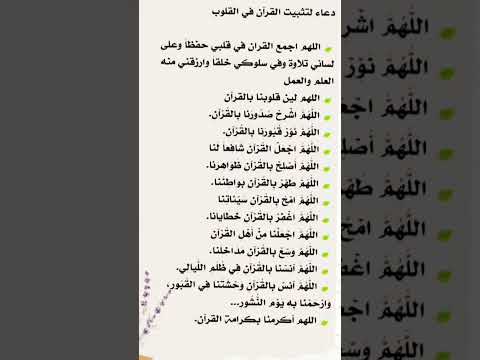 دعاء لتثبيت القرآن في القلوب
اللهم اجمع القران في قلبي حفظا وعلى
لساني تلاوة وفي سلوكي خلقا وارزقني منه
العلم والعمل
اللهم لين قلوبنا بالقرآن
اللَّهُمَّ اشْرحْ صُدُورنا بالقُرْآن.
اللَّهُمَّ نوّرْ قُبُورَنا بالقُرْآن.
اللَّهُمَّ اجْعلْ القُرْآن شافعاً لنا
اللَّهُمَّ أَصْلِحْ بالقُرْآن ظواهرنا.
اللَّهُمَّ طهّرْ بالقُرْآن بواطننا.
اللَّهُمَّ امْحُ بالقُرْآن سيّئاتنا
اللَّهُمَّ اغْفرْ بالقُرْآن خطايانا.
اللَّهُمَّ اجْعلْنا منْ أهْل القُرْآن
اللَّهُمَّ وسّعْ بالقُرْآن مداخلنا.
اللَّهُمَّ آنسْنا بالقُرْآن في ظُلم اللّيالي.
اللَّهُمَّ آنسْ بالقُرْآن وحْشتنا في القُبُور،
وارْحمْنا به يوْم النُّشُور...
اللهم أكرمنا بكرامة القرآن.